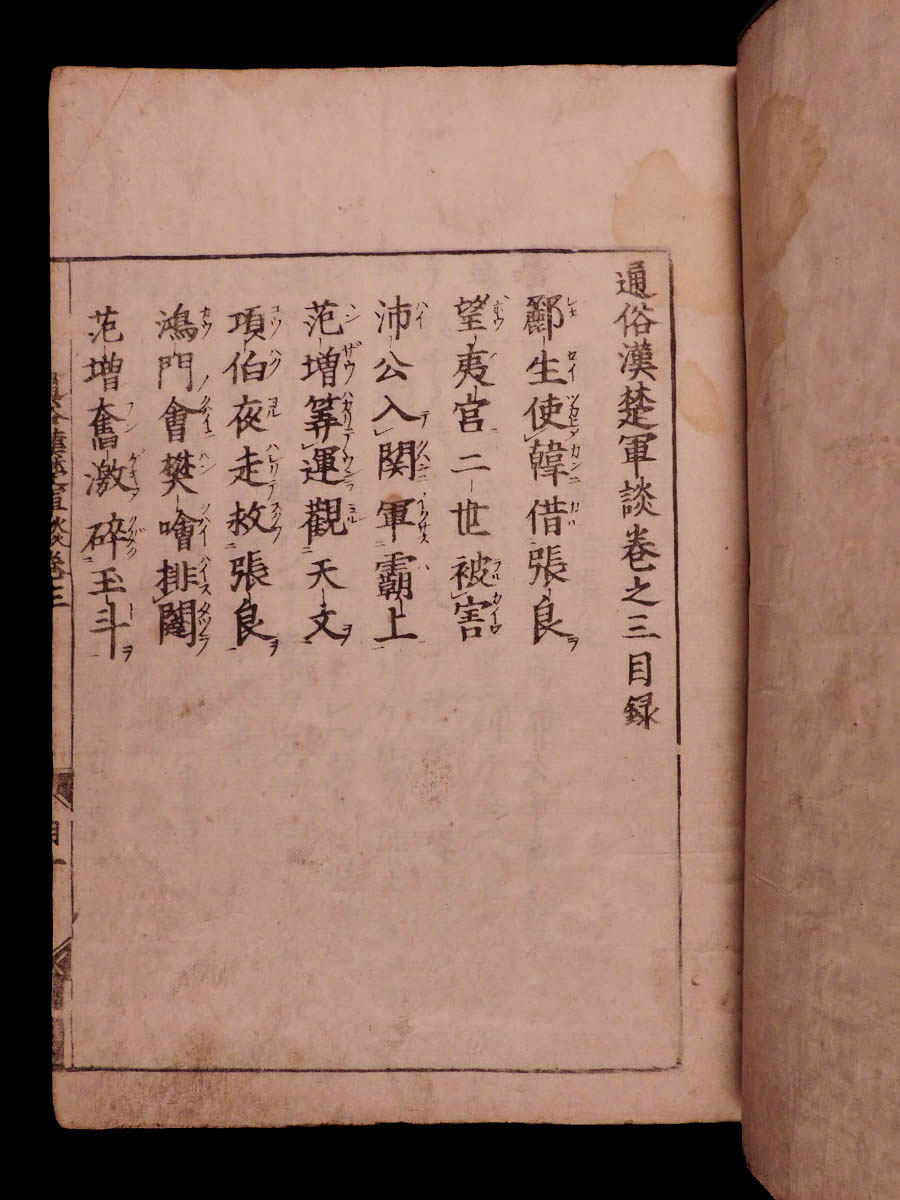 通俗漢楚軍談卷之三目録
酈生使韓借張良
望夷宮二世被害
沛公入関軍霸上
范増筭運觀天文
項伯夜走救張良
鴻門會樊噲排闥
范増奮激碎玉斗
通俗漢楚軍談卷三
目一